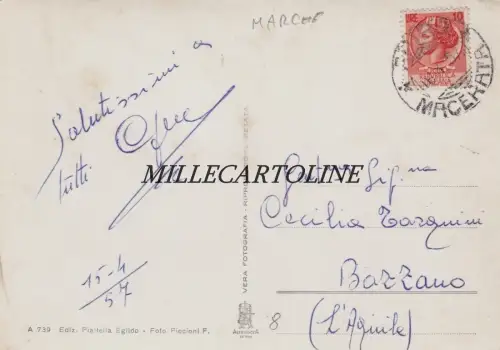 MARCHE
LIRE 10
MACERATA
Salutissimi a
tutti
15-4
57
MILLECARTOLINE
VERA FOTOGRAFIA - RIPRODUZIONE VIETATA
Sig.na
Cecilia Tarquini
Bazzano
8 (L'Aquila)
A 739 Ediz. Piattella Egildo - Foto Piccioni F.